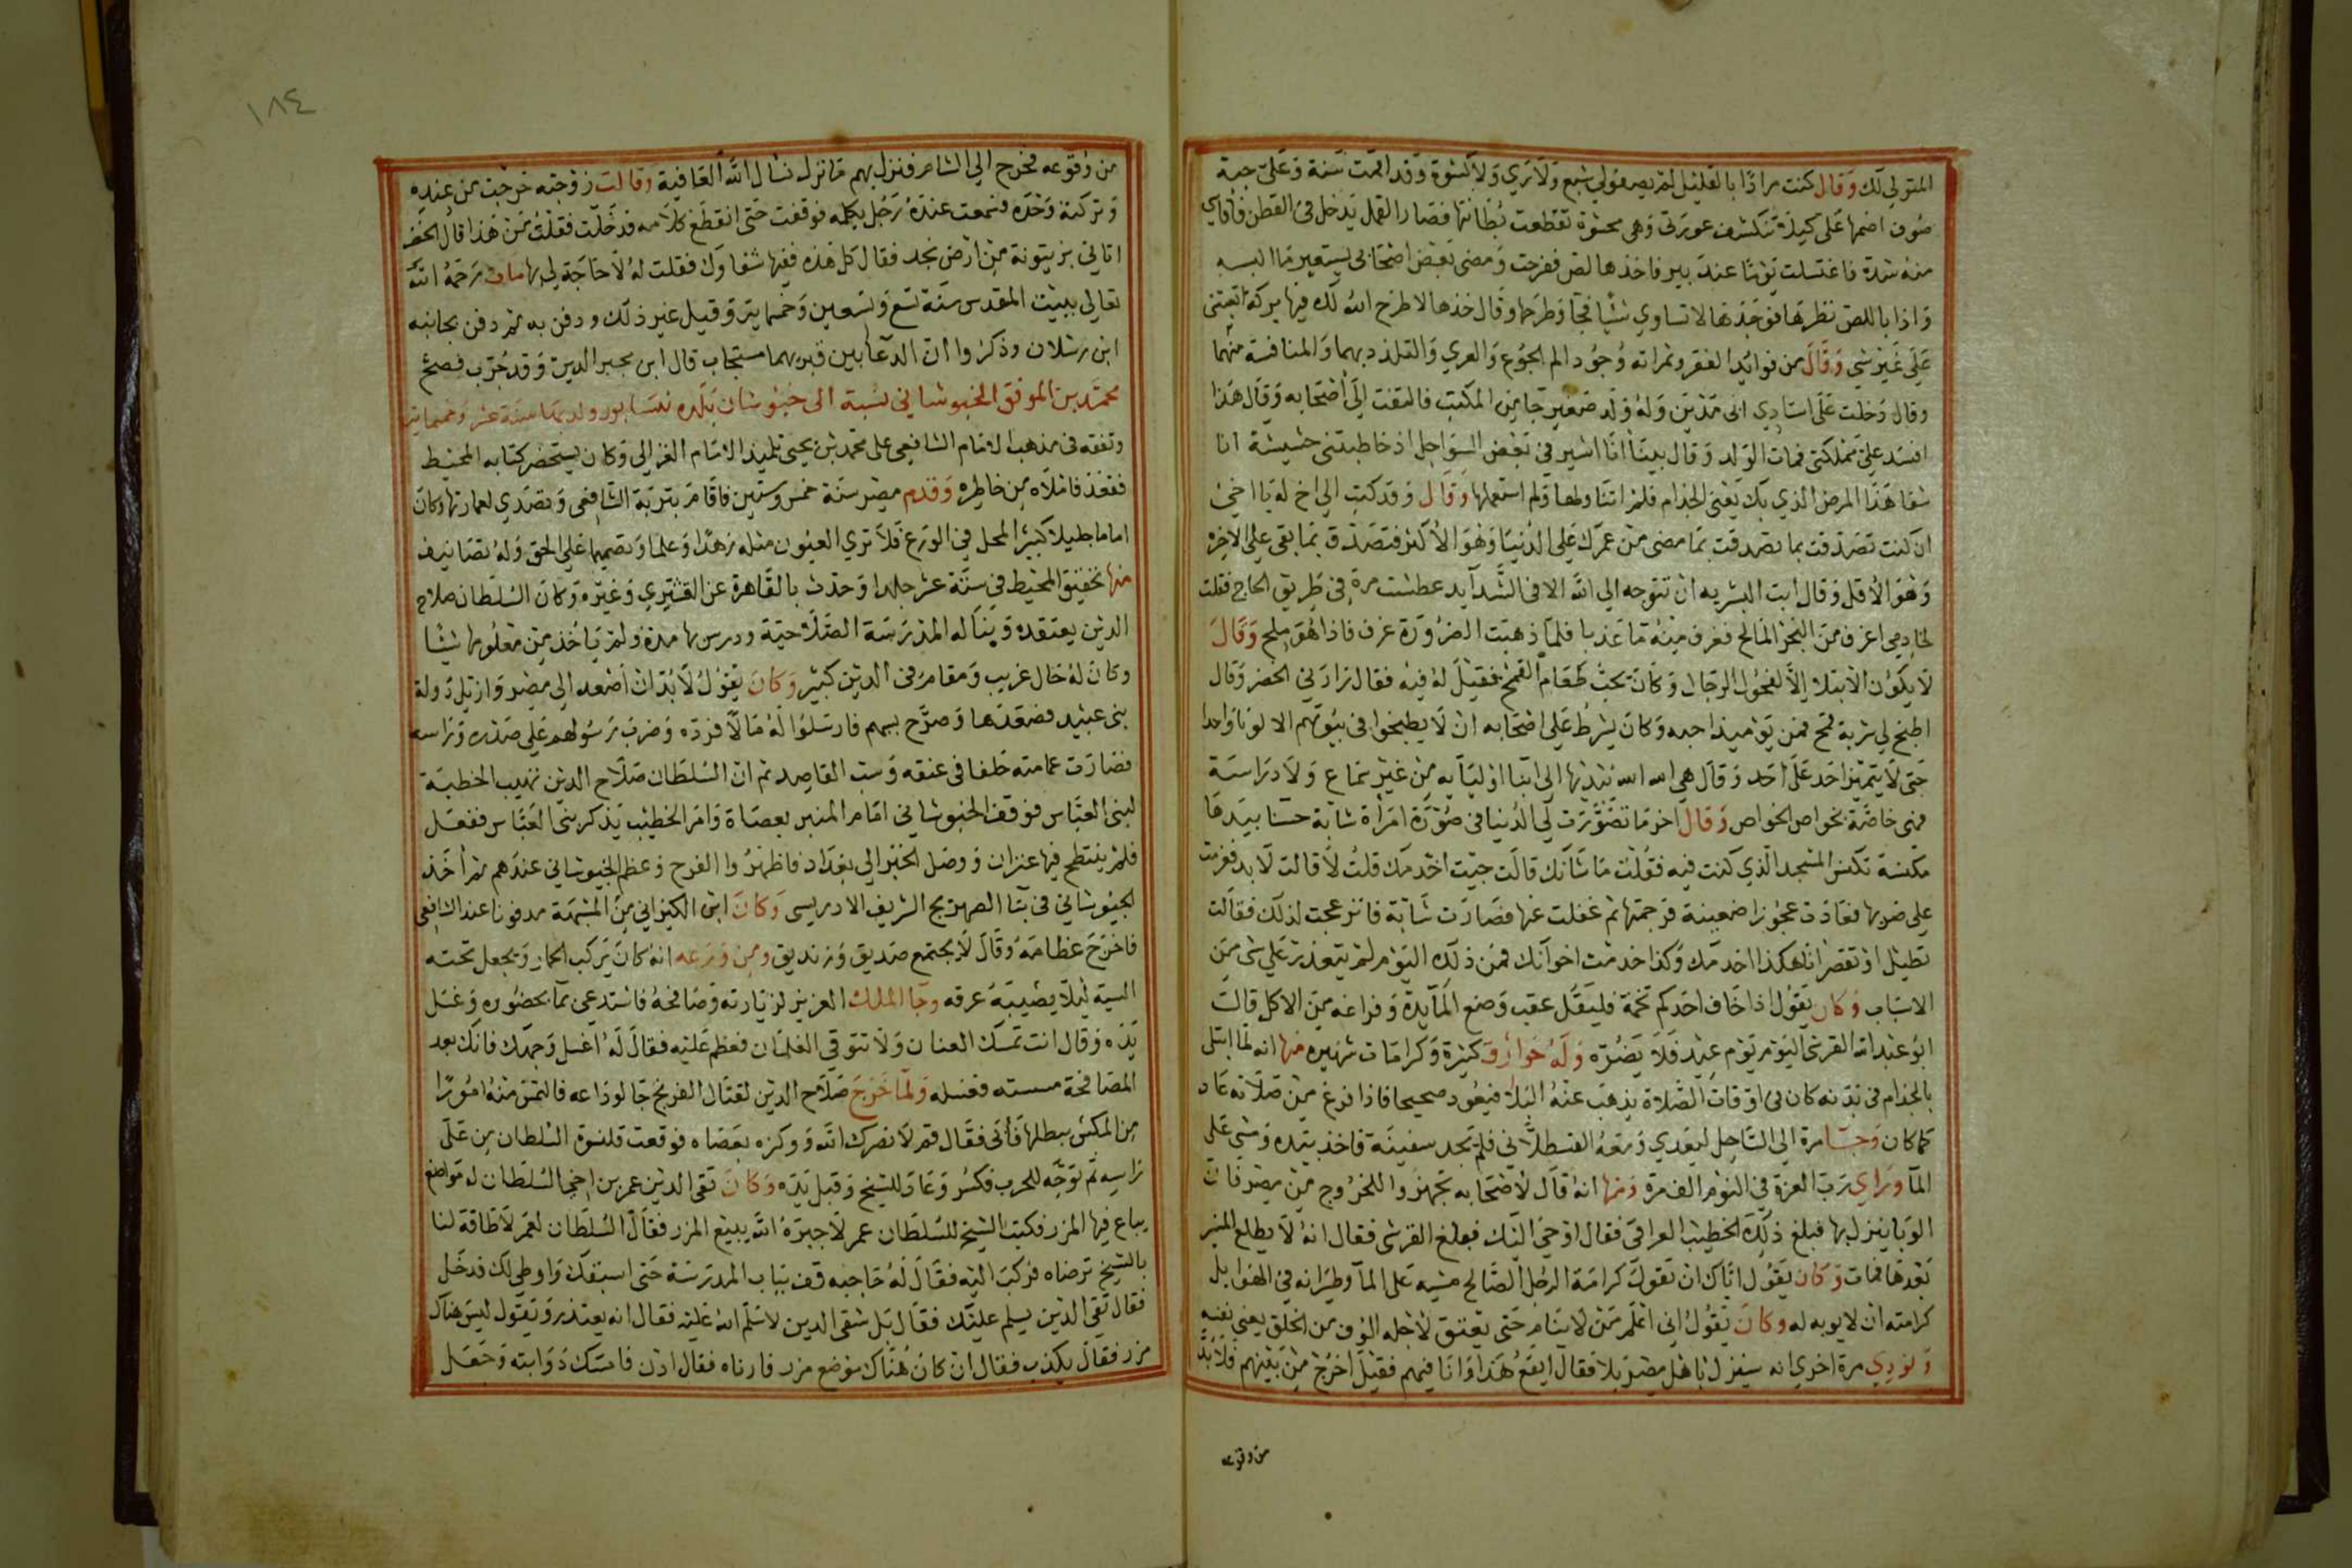 المتولي لك وقال كنت مرادا بالقليل لم يصرف لي شبع ولا ري ولا كسوة وقد اقمت سنة وعلي جبة
صوف اضمها على كيلا تنكشف عورتي وهي محشوة تقطعت بطانتها فصار القمل يدخل في القطن فأقاسي
منه شدة فاغتسلت يوما عند بير فاخذها لص ففرحت ومضى بعض اصحابي يستعير ما البسه
واذا باللص نظرها فوجدها لا تساوي شيا فجا وطرحها وقال خذها لا طرح الله لك فيها بركة اتعبتني
على غير شي وقال من فوائد الفقر وثمراته وجود الم الجوع والعري والتلذذ بهما والمنافسة فيهما
وقال دخلت على استاذي ابي مدين وله ولد صغير جا من المكتب فالتفت الى اصحابه وقال هذا
افسد علي مملكتي فمات الولد وقال بينا انا اسير في بعض السواحل اذ خاطبتني حشيشة انا
شفا هذا المرض الذي بك يعني الجذام فلم اتناولها ولم استعملها وقال وقد كتب الي اخ له يا اخي
ان كنت تصدقت بما تصدقت بما مضى من عمرك على الدنيا وهو الاكثر فتصدق بما بقى على الاخرة
وهو الاقل وقال ابت البشريه ان تتوجه الى الله الا في الشدايد عطشت مرة في طريق الحاج فقلت
لخادمي اغرف من البحر المالح فغرف منه ما عذبا فلما ذهبت الضرورة غرف فاذا هو ملح وقال
لا يكون الابتلا الا لفحول الرجال وكان يحب طعام القمح فقيل له فيه فقال زارني الخضر وقال
اطبخ لي شربة قمح فمن يوميذ احبه وكان يشرط على اصحابه ان لا يطبخوا في بيوتهم الا لونا واحدا
حتى لا يتميز احد على احد وقال هي اسرار يلقيها الى ابنا اوليايه من غير سماع ولا دراسة
فهي خاضة بخواص الخواص وقال اخر ما تصورت لي الدنيا في صورة امراة شابة حسنا بيدها
مكنسة تكنس المسجد الذي كنت فيه فقلت ما شانك قالت جيت اخدمك قلت لا قالت لا بد فعزمت
على ضربها فعادت عجوزا ضعيفة فرحمتها ثم غفلت عنها فصارت شابة فانزعجت لذلك فقالت
تطيل او تقصر انا هكذا اخدمك وكذا خدمت اخوانك فمن ذلك اليوم لم يتعذر علي شي من
الاسباب وكان يقول اذا خاف احدكم تخمة فليقل عقب وضع المايدة وفراغه من الاكل قالت
ابو عبد الله القرشي اليوم يوم عيد فلا يضره وله خوارق كثيرة وكرامات شهيره منها انه لما ابتلى
بالجذام في بدنه كان في اوقات الصلاة يذهب عنه البلا فيعود صحيحا فاذا فرغ من صلاته عاد
كما كان وجا مرة الى الساحل ليعدي ومعه القسطلاني فلم يجد سفينة فاخذ بيده ومشى على
المآ وراي رب العزة في النوم الف مرة ومنها انه قال لاصحابه تجهزوا للخروج من مصر فان
الوبا ينزل بها فبلغ ذلك الخطيب العراقي فقال اوحي اليك فبلغ القرشي فقال انه لا يطلع المنبر
بعدها فمات وكان يقول اياك ان تقول كرامة الرجل الصالح مشيه على المآ وطيرانه في الهوا بل
كرامته ان لا يوبه له وكان يقول اني اعلم من لا ينام حتى يعتق لاجله الوف من الخلق يعني نفسه
ونودي مرة اخرى انه سينزل باهل مصر بلا فقال ايقع هذا وانا فيهم فقيل اخرج من بينهم فلا بد
من وقوعه
١٨٤
من وقوعه فخرج الي الشام فنزل بهم ما نزل نسال الله العافية وقالت زوجته خرجت من عنده
وتركته وحده فسمعت عنده رجل يكلمه فوقفت حتى انقطع كلامه فدخلت فقلت من هذا قال الخضر
اتاني بزيتونة من ارض نجد فقال كل هذه ففيها شفاوك فقلت له لا حاجة لي بها مات رحمه الله
تعالى ببيت المقدس سنة تسع وتسعين وخمسماية وقيل غير ذلك ودفن به ثم دفن بجانبه
ابن رسلان وذكروا ان الدعا بين قبريهما مستجاب قال ابن مجير الدين وقد جرب فصح
محمد بن الموفق الخبوشاني نسبة الى خبوشان بلده نيسابور ولد بها سنة عشر وخمسماية
وتفقه في مذهب الامام الشافعي على محمد بن يحيى تلميذ الامام الغزالي وكان يستحضر كتابه المحيط
ففقد فاملاه من خاطره وقدم مصر سنة خمس وستين فاقام بتربة الشافعي وتصدي لعمارتها وكان
اماما جليلا كبير المحل في الورع قلا تري العيون مثله زهدا وعلما وتصميما على الحق وله تصانيف
منها تحقيق المحيط في ستة عشر جلدا وحدث بالقاهرة عن القشيري وغيره وكان السلطان صلاح
الدين يعتقده وبنا له المدرسة الصلاحية ودرس بها مدة ولم ياخذ من معلومها شيا
وكان له حال غريب ومقام في الدين كبير وكان يقول لا بد ان اصعد الى مصر وازيل دولة
بني عبيد فصعدها وصرح بسبهم فارسلوا له مالا فرده وضرب رسولهم على صدره وراسه
فصارت عمامته حلقا في عنقه وسب القاصد ثم ان السلطان صلاح الدين تهيب الخطبة
لبني العباس فوقف الخبوشاني امام المنبر بعصاة وامر الخطيب يذكر بني العباس ففعل
فلم ينتطح فيها عنزان ووصل الخبر الى بغداد فاظهروا الفرح وعظم الخبوشاني عندهم ثم اخذ
الخبوشاني في بنا الضريح الشريف الادريسي وكان ابن الكيزاني من المشبهة مدفونا عند الشافعي
فاخرج عظامه وقال لا يجتمع صديق وزنديق ومن ورعه انه كان يركب الحمار ويجعل تحته
اكسية ليلا يصيبه عرقه وجا الملك العزيز لزيارته وصافحه فاستدعى بمآ بحضوره وغسل
يده وقال انت تمسك العنان ولا تتوقى الغلمان فعظم عليه فقال له اغسل وجهك فانك بعد
المصافحة مسسته فغسله ولما خرج صلاح الدين لقتال الفرنج جا لوداعه فالتمس منه امورا
من المكس يبطلها فأبى فقال قم لا نصرك الله ووكزه بعصاه فوقعت قلنسوة السلطان من على
راسه ثم توجه للحرب فكسر وعاد للشيخ وقبل يده وكان تقى الدين عمر بن اخي السلطان له مواضع
يباع فيها المزر فكتب الشيخ للسلطان عمر لا جبره الله يبيع المزر فقال السلطان لعمر لا طاقة لنا
بالشيخ ترضاه فركب اليه فقال له حاجبه قف بباب المدرسة حتى اسبقك واوطي لك فدخل
فقال تقي الدين يسلم عليك فقال بل شقى الدين لا سلم الله عليه فقال انه يعتذر ويقول ليس هناك
مزر فقال يكذب فقال ان كان هناك موضع مزر فارناه فقال ادن فامسك ذوابته وجعل